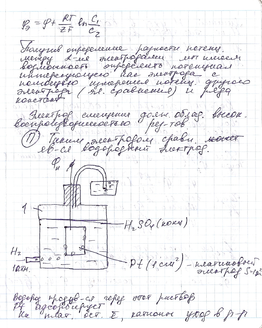 φ₀ = φ + RT/ZF ln C₁/C₂
Получив определение разности потенц.
между 2-мя электродами мы имеем
возможность определить потенциал
интересующего нас электрода с
помощью измерения потенц. другого
электрода (эл. сравнения) и ряда
констант.
Электрод сравнения должен облад. высок.
воспроизводимостью рез-тов.
① Таким электродом сравн. может
явл-ся водородный электрод.
H₂SO₄ (конц)
H₂
1 атм.
Pt (1 см²) - платиновый
электрод
Водород продув-ся через этот раствор
Pt адсорбирует